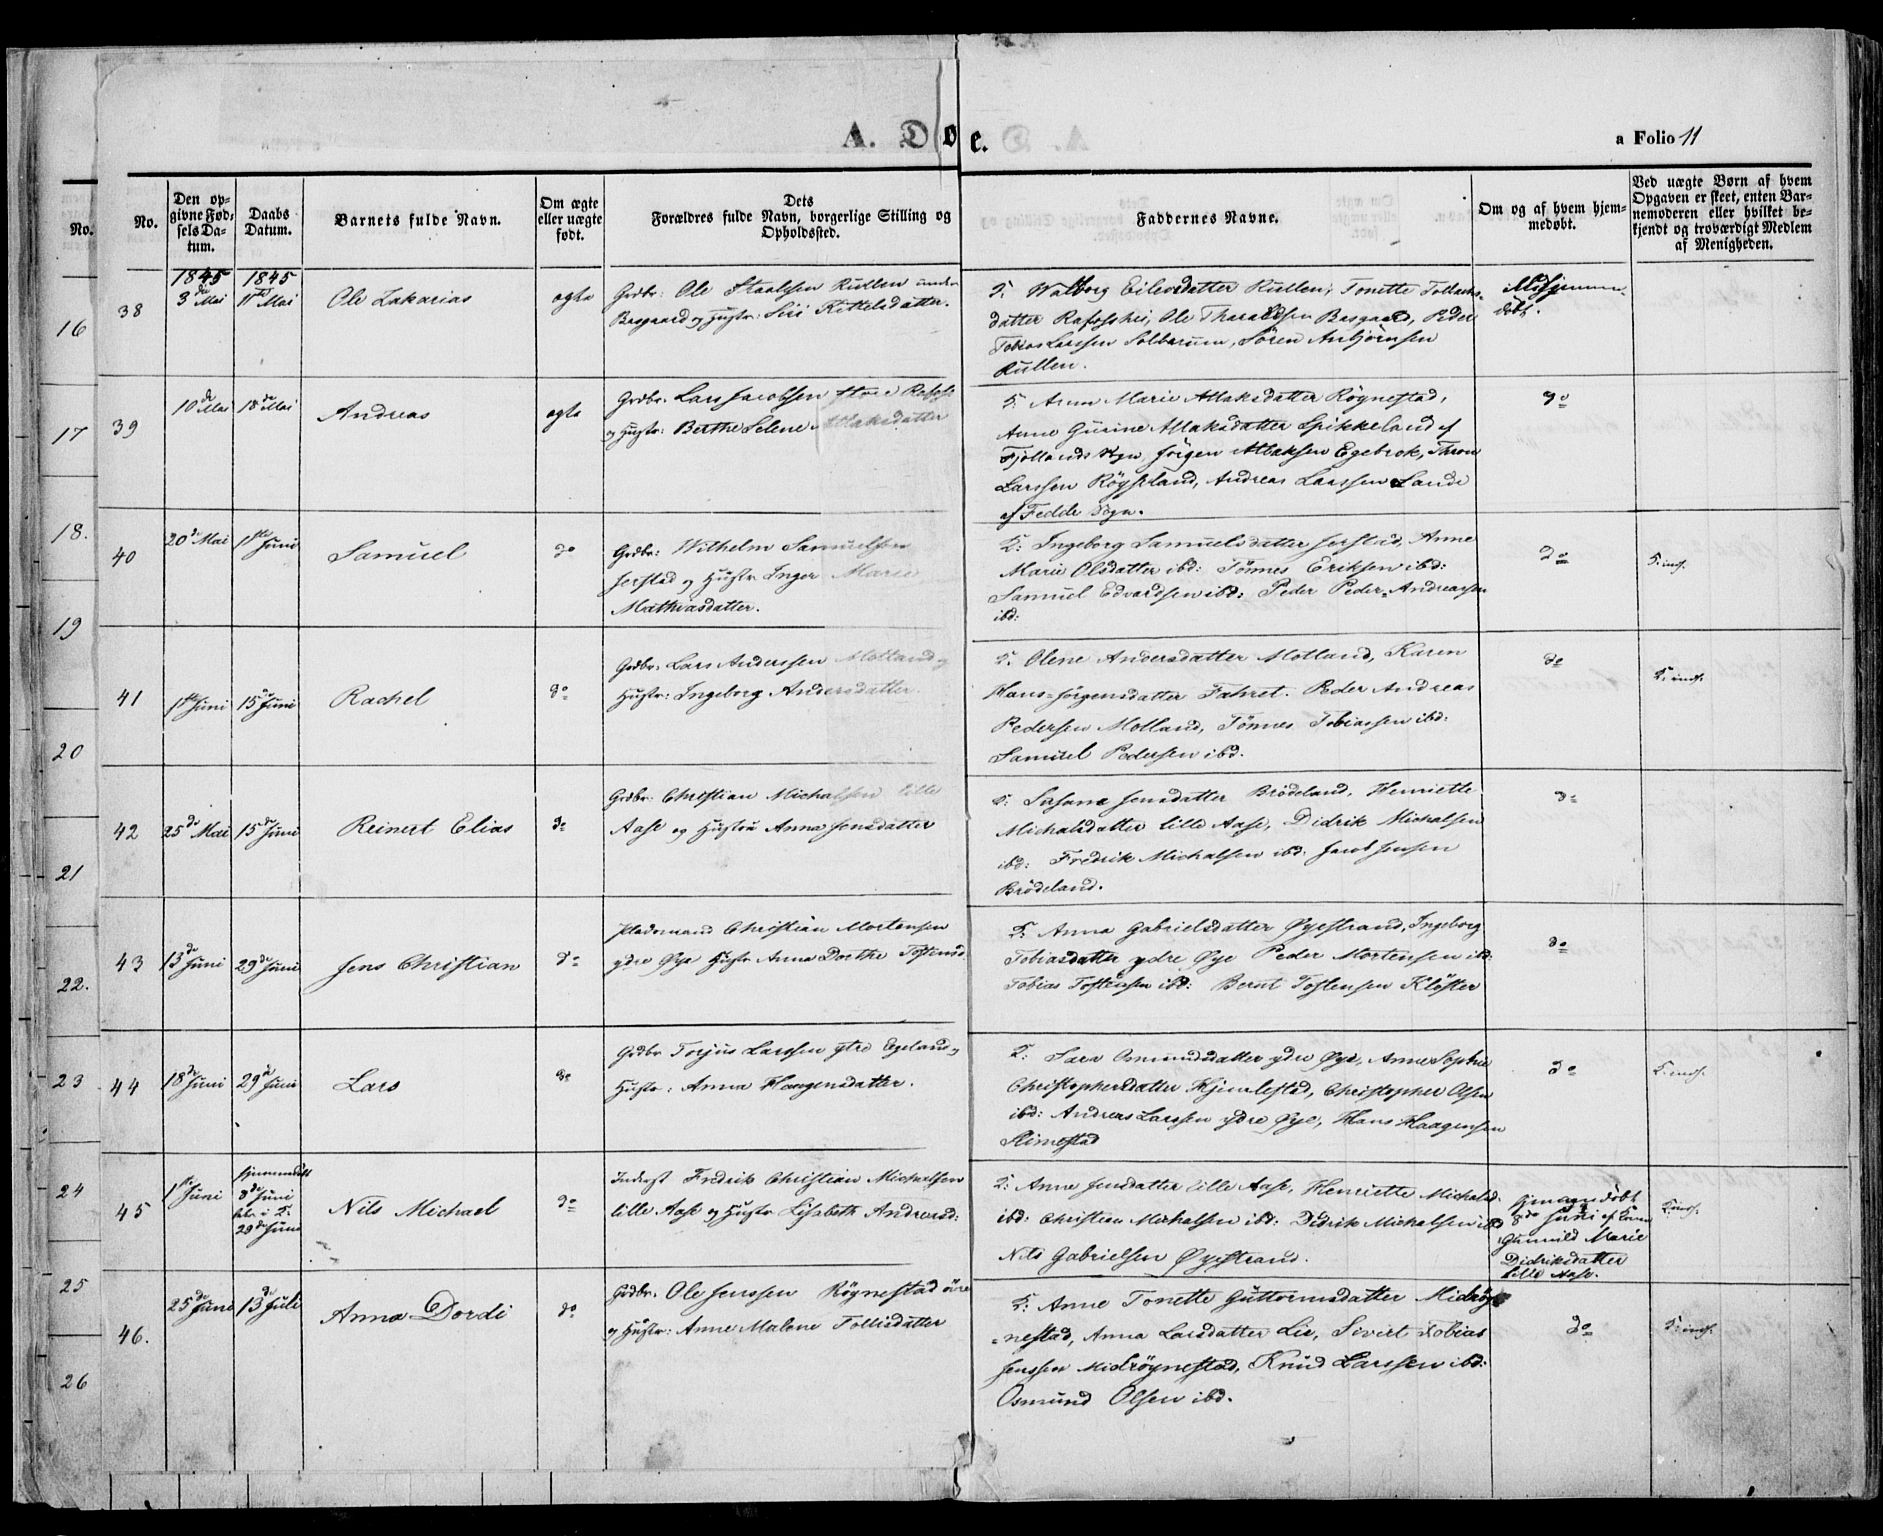 A. Dø e.
a Folio 11
No.
No.
Den opgivne Fødselsdatum.
Daabs Datum.
Barnets fulde Navn.
Om ægte eller uægte født.
Dets Forældres fulde Navn, borgerlige Stilling og Opholdssted.
Faddernes Navne.
Om og af hvem hjemmedøbt.
Ved uægte Børn af hvem Opgaven er skeet, enten Barnemoderen eller hvilket bekjendt og troværdigt Medlem af Menigheden.
16
17
18.
19
20
21
22.
23
24
25
26
1845 1845
38
3 die Mai 11te Mai
Ole Zakarias
ægte
Grdbr: Ole Staalsen Rullen under
Basgaard og Hustr: Siri Kittelsdatter.
F. Walborg Eilevsdatter Rullen, Tonette
datter Ole Tharaldsen Basgaard, Peder
Tobias Larssen Solbærum, Sören Anbjörnsen
Rullen.
39
10 de Mai 18 de Mai
Andreas
ægte
Grdbr. Lars Jacobsen Store
og Hustr: Berthe Selene Atlaksdatter
F. Anne Marie Atlaksdatter Röynestad,
Anne Gurine Atlaksdatter Spikkeland af
Fjotlands Sogn, Jörgen Atlaksen Egebrok, Thron
Larssen Röyseland, Andreas Larssen Lande
af Fedde Sogn.
do
40
20 de Mai 1ste Juni
Samuel
do
Grdbr: Wilhelm Samuelsen
Jerstad og Hustr Inger Marie
Mathiasdatter.
F: Ingeborg Samuelsdatter Jerstad, Anne
Marie Olsdatter ibd: Tönnes Eriksen ibd:
Samuel Edvardsen ibd: Peder Peder-Andreassen
ibd:
do
41
1ste Juni 15 de Juni
Rachel
do
Grdbr: Lars Anderssen Motland og
Hustr: Ingeborg Andersdatter.
F. Olene Andersdatter Motland, Karen
Hans-Jörgensdatter Fahret. Peder Andreas
Pedersen Motland, Tönnes Tobiassen ibd:
Samuel Pedersen ibd.
do
42
25 de Mai 15 de Juni
Reinert Elias
do
Grdbr: Christian Michalsen lille
Aase og Hustru Anna Jensdatter
F: Susane Jensdatter Brödeland, Henriette
Michalsdatter lille Aase, Didrik Michalsen
ibd: Fredrik Michalsen ibd: Jacob Jensen
Brödeland.
do
43
13 de Juni 29 de Juni
Jens Christian
do
Pladsmand Christian Mortensen
ydre Øye Hustr Anna Dorthe Tostensd.
F. Anna Gabrielsdatter Øyestrand, Ingeborg
Tobiasdatter ydre Øye Peder Mortensen ib:
Tobias Tostensen ibd: Bernt Tostensen Klöster
do
44
18 de Juni 29 de Juni
Lars
do
Grdbr Torjus Larssen ytre Egeland og
Hustr: Anna Haagensdatter.
F. Sara Osmundsdatter ydre Øye, Anne Sophie
Christophersdatter Christopher Olsen
ibd: Andreas Larssen ydre Øye, Hans Haagensen
do
45
1ste Juni
hjemmedöbt
8 de Juni
29 de Juni
Nils Michael
do
Inderst Fredrik Christian Michaelsen
lille Aase og Hustr Lisbeth Andreasd:
F: Anne Jensdatter lille Aase, Henriette Michalsd.
ibd: Christian Michalsen ibd: Didrik Michalsen ibd
Nils Gabrielsen Øyestrand.
hjemmedöbt
8de Juni af
Gunnild Marie
Didriksdatter
lille Aase.
46.
25 de Juni 13 de Juli
Anna Dordi
do
Grdbr. Ole Jenssen Röynestad
og Hustr: Anne Malene Tollisdatter
F: Anne Tonette Guttormsdatter Midröy-
nestad, Anna Larsdatter Lie, Sivert Tobias
Jenssen Midröynestad, Knud Larssen ibd:
Osmund Olsen ibd.
do